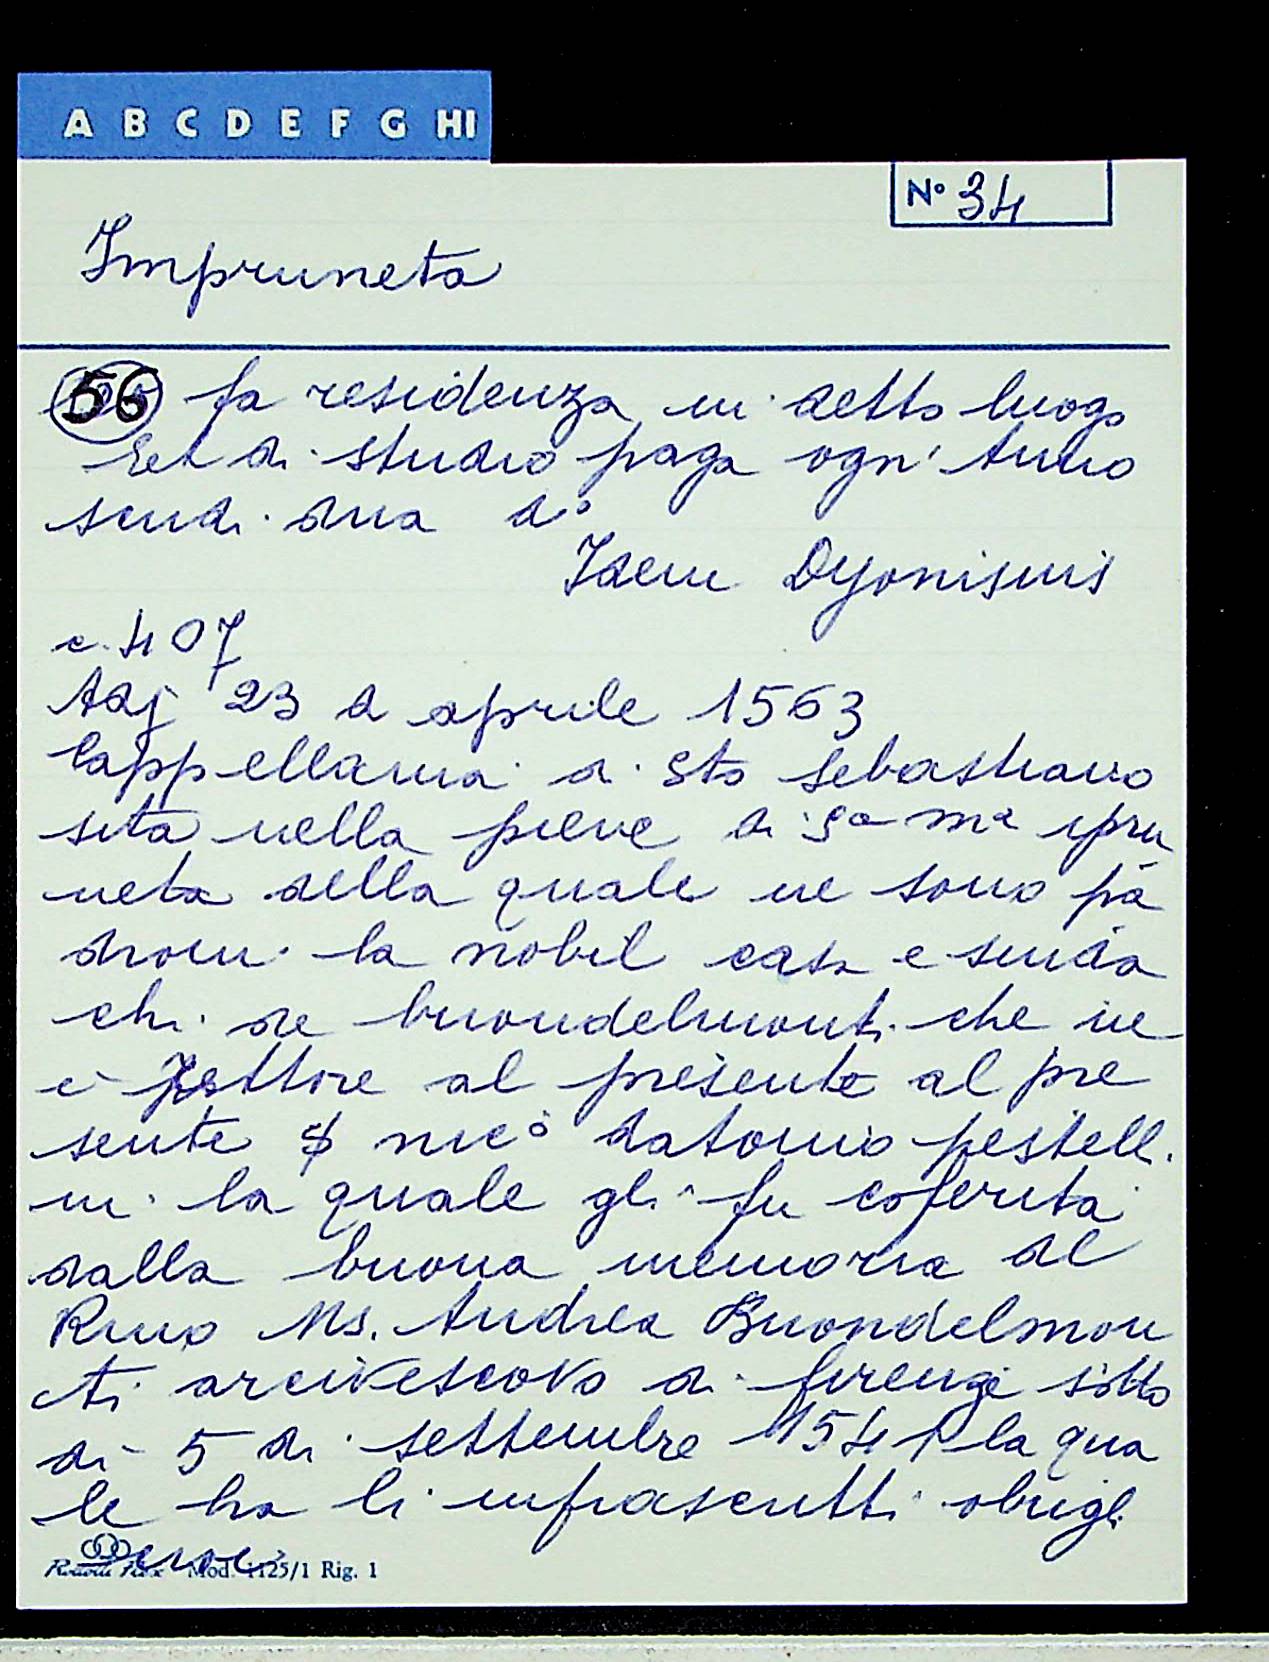 A B C D E F G HI
N° 34
Impruneta
56 fa residenza in detto luogo
Et di studio paga ogn' Anno
scudi dua d°
Idem Dyonisius
c. 407
Adj 23 d aprile 1563
Cappellania di Sto Sebastiano
sita nella pieve di Sa ma ipru
neta della quale ne sono pa
droni la nobil casa e
chi de buondelmonti che ne
è Rettore al presente al pre
sente nic° datonio pestell
in la quale gli fu coferita
dalla buona memoria del
Rmo Ms. Andrea Buondelmon
ti arcivescovo di firenze sotto
di 5 di settembre 1541 la qua
le ha li infrascritti obrigli
Mod. 1125/1 Rig. 1